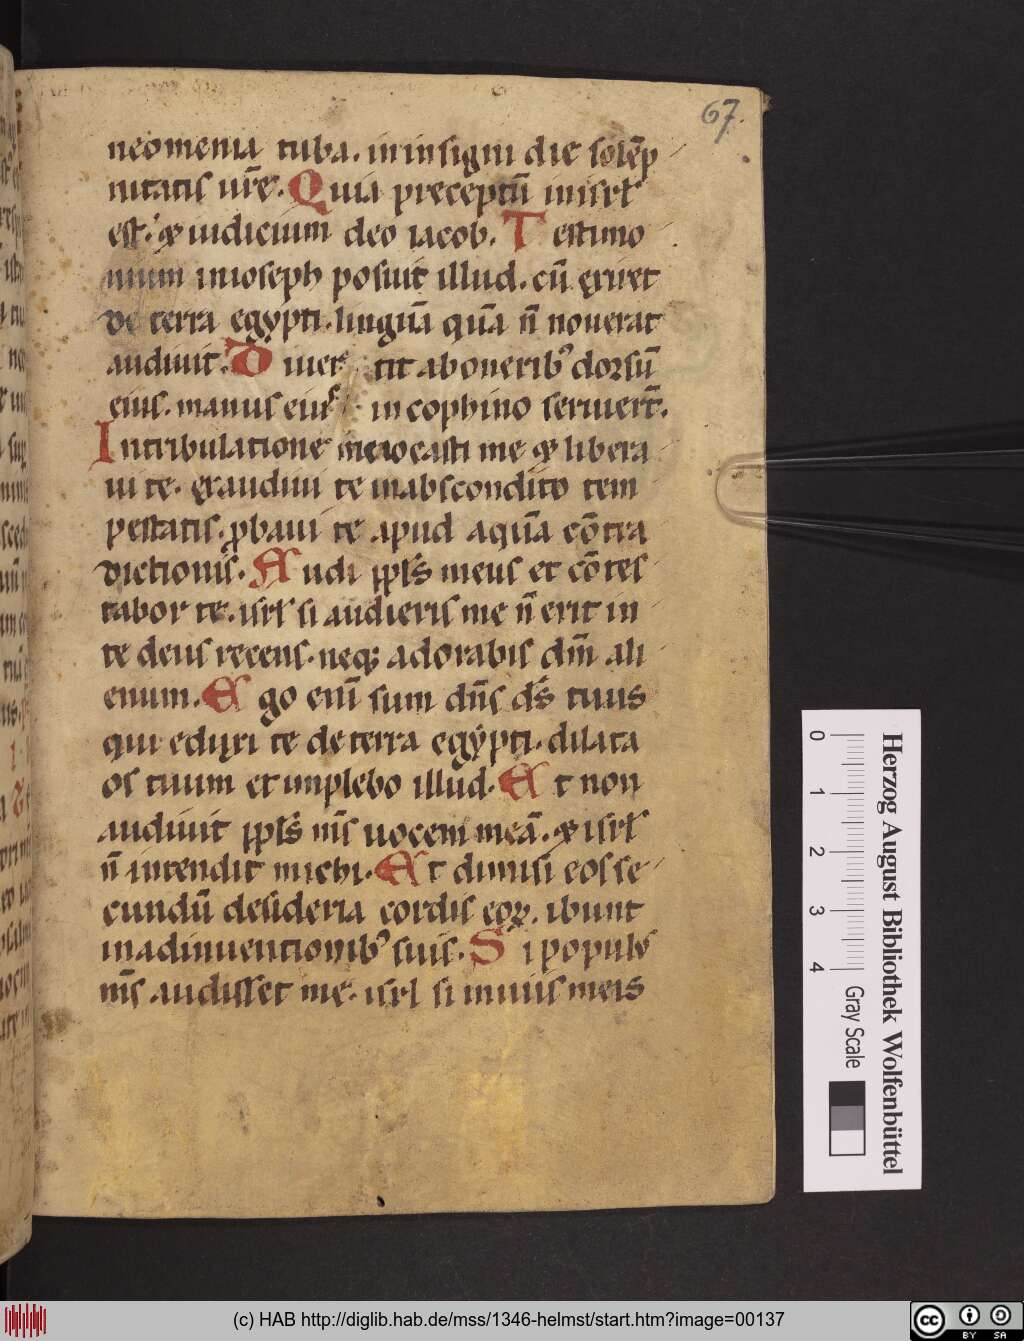 67.
neomenia tuba. in insigni die solēp
nitatis ur̄e. Quia preceptū in isrł
est. & iudicium deo iacob. Testimo
nium in ioseph posuit illud. cū exiret
de terra egypti. linguā quā n̄ nouerat
audiuit. Diuertit ab onerib; dorsū
eius. manus eius in cophino seruier̄t.
In tribulatione me uocasti me & libera
ui te. exaudiui te in abscondito tem
pestatis. ꝓbaui te apud aquā cōtra
dictionis. Audi pp̄ls meus et cōtes
tabor te. isrł si audieris me n̄ erit in
te deus recens. neq; adorabis dm̄ ali
enum. Ego eni sum dn̄s ds̄ tuus
qui eduxi te de terra egypti. dilata
os tuum et implebo illud. Et non
audiuit pp̄ls ms̄ uocem meā. & isrł
n̄ intendit michi. Et dimisi eos se
cundū desideria cordis eoꝝ. ibunt
in adinuentionib; suis. Si populus
ms̄ audisset me. isrl si in uiis meis
Herzog August Bibliothek Wolfenbüttel
0 1 2 3 4 Gray Scale
(c) HAB http://diglib.hab.de/mss/1346-helmst/start.htm?image=00137
cc BY SA